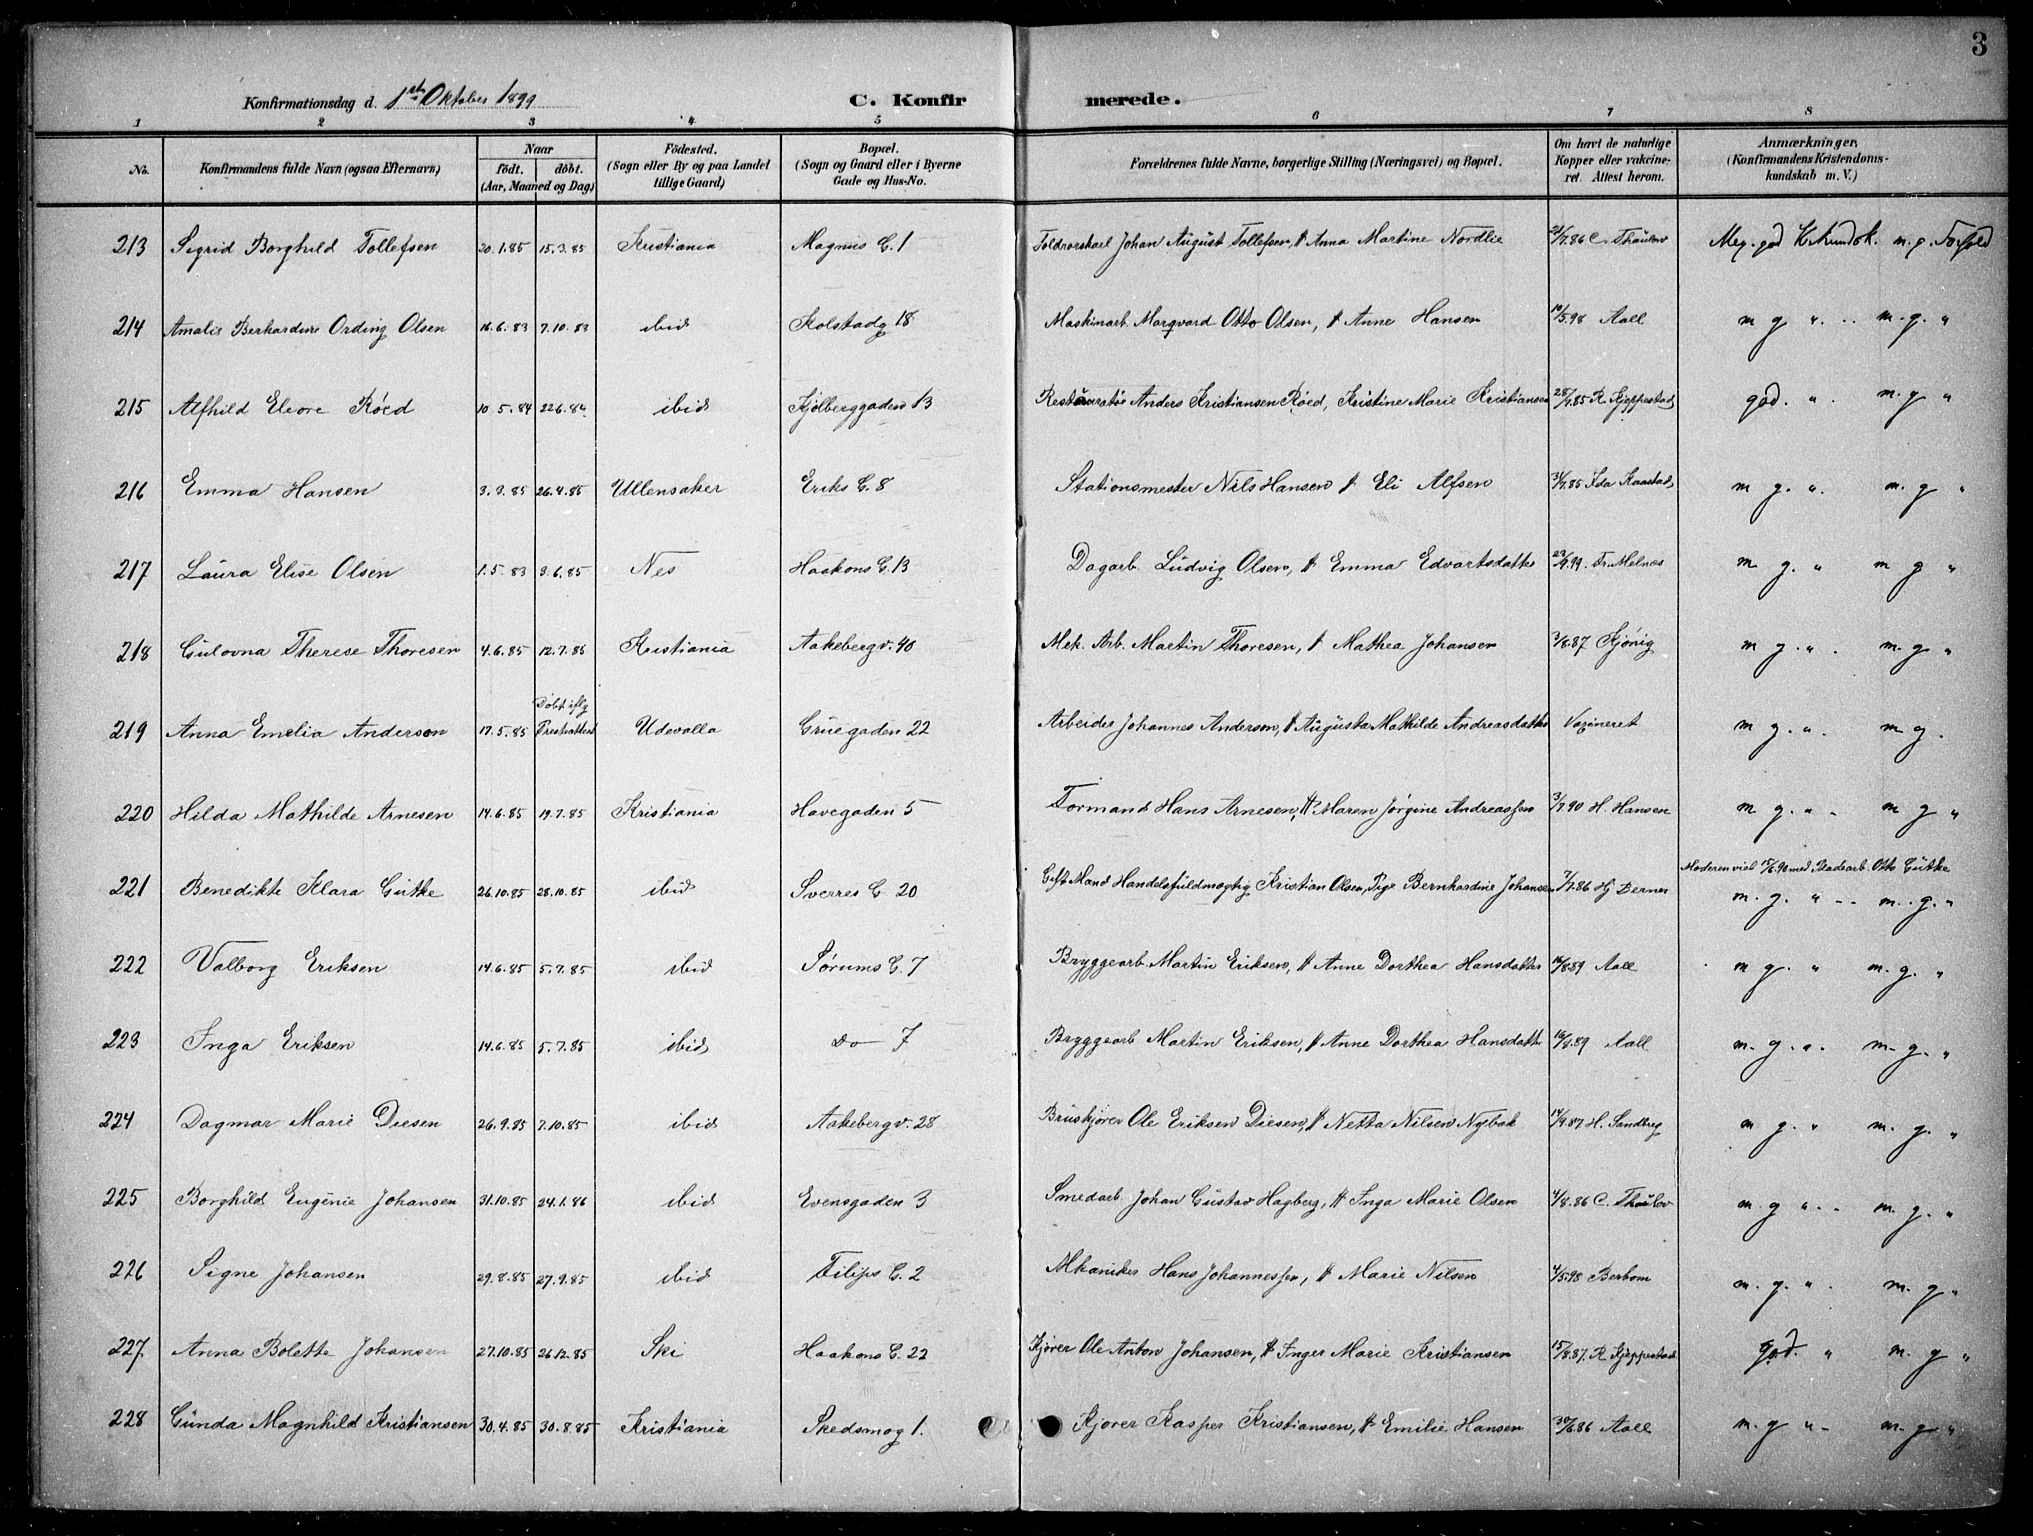 3
Konfirmationsdag d. 1ste Oktober 1899 C. Konfirmerede.
1 2 3 4 5 6 7 8
No. Konfirmandens fulde Navn (ogsaa Efternavn) Naar født. døbt. (Aar, Maaned og Dag) Fødested. (Sogn eller By og paa Landet tillige Gaard) Bopæl. (Sogn og Gaard eller i Byerne Gade og Hus-No. Forældrenes fulde Navne, borgerlige Stilling (Næringsvei) og Bopæl. Om havt de naturlige Kopper eller vakcineret. Attest herom. Anmærkninger. (Konfirmandens Kristendomskundskab m. V.)
213 Sigrid Borghild Tollefsen 20.1.85 15.3.85 Kristiania Magnus G. 1 Toldrorskarl Johan August Tollefsen, H Anna Martine Nordlie 21/7.86 C. Thaulow Meg. god K.kundsk. m. g. Forhold
214 Amalie Berhardine Ording Olsen 16.6.83 7.10.83 ibid Kolstadg 18 Maskinarb. Marqvard Otto Olsen, H Anne Hansen 10/5.98 Aall m g " m. g. "
215 Alfhild Eleore Røed 10.5.84 22.6.84 ibid Kjølberggaden 13 Restauratør Anders Kristiansen Røed, Kristine Marie Kristiansen 28/7.85 R. Kjeppestad god. " m. g "
216 Emma Hansen 3.3.85 26.4.85 Ullensaker Eriks G. 8 Stationsmester Nils Hansen H Eli Alfsen 31/7.85 Ida Kaastad m g. " m. g "
217 Laura Elise Olsen 1.5.83 3.6.85 Nes Haakons G. 13 Dagarb. Ludvig Olsen, H Emma Edvartsdatter 22/9.99. Fr. Melnæs m g. " m g "
218 Gulovna Therese Thoresen 4.6.85 12.7.85 Kristiania Aakebergv. 40 Mek. Arb. Martin Thoresen, H Mathea Johansen 3/8.87 Kjønig m g. " m. g "
219 Anna Emelia Anderson 17.5.85 Døbt iflg Prestattest Udevalla Gruegaden 22 Arbeider Johannes Anderson, H Augusta Mathilde Andreasdatter Vaxineret m g. " m g.
220 Hilda Mathilde Arnesen 14.6.85 19.7.85 Kristiania Havegaden 5 Formand Hans Arnesen, H Maren Jørgine Andreassen 3/7.90 H. Hansen m g. " m g "
221 Benedikte Klara Gütke 26.10.85 28.10.85 ibid Sverres G. 20 Gift Mand Handelsfuldmægtig Kristian Olsen, Pige Bernhardine Johansen 7/7.86 Hj Berner Moderen viet 15/6.90 med Pladearb. Otto Gütke m. g. " m. g. "
222 Valborg Eriksen 14.6.85 5.7.85 ibid Sørums G. 7 Bryggearb. Martin Eriksen, H Anne Dorthea Hansdatter 16/8.89 Aall m g. " m. g. "
223 Inga Eriksen 14.6.85 5.7.85 ibid do 7 Bryggearb Martin Eriksen, H Anne Dorthea Hansdatter 16/8.89 Aall m. g. " m. g. "
224 Dagmar Marie Diesen 26.9.85 7.10.85 ibid Aakebergv. 28 Bruskjører Ole Eriksen Diesen, H Netta Nilsen Nybak 14/9.87 H. Sandberg m g. " m. g. "
225 Borghild Eugenie Johansen 31.10.85 24.1.86 ibid Evensgaden 3 Smedarb. Johan Gustav Hagberg, H Inga Marie Olsen 4/8.86 C. Thaulow m. g " m. g. "
226 Signe Johansen 29.8.85 27.9.85 ibid Filips G. 2 Mkaniker Hans Johannessen, H Marie Nilsen 4/5.98 Berbom m. g. " m. g "
227 Anna Bolette Johansen 27.10.85 26.12.85 Ski Haakons G. 22 Kjører Ole Anton Johansen, H Inger Marie Kristiansen 15/8.87. R. Kjeppestad God. " m. g "
228 Gunda Magnhild Kristiansen 30.4.85 30.8.85 Kristiania Skedsmog 1. Kjører Kasper Kristiansen, H Emilie Hansen 30/6.86 Aall m. g " m. g "